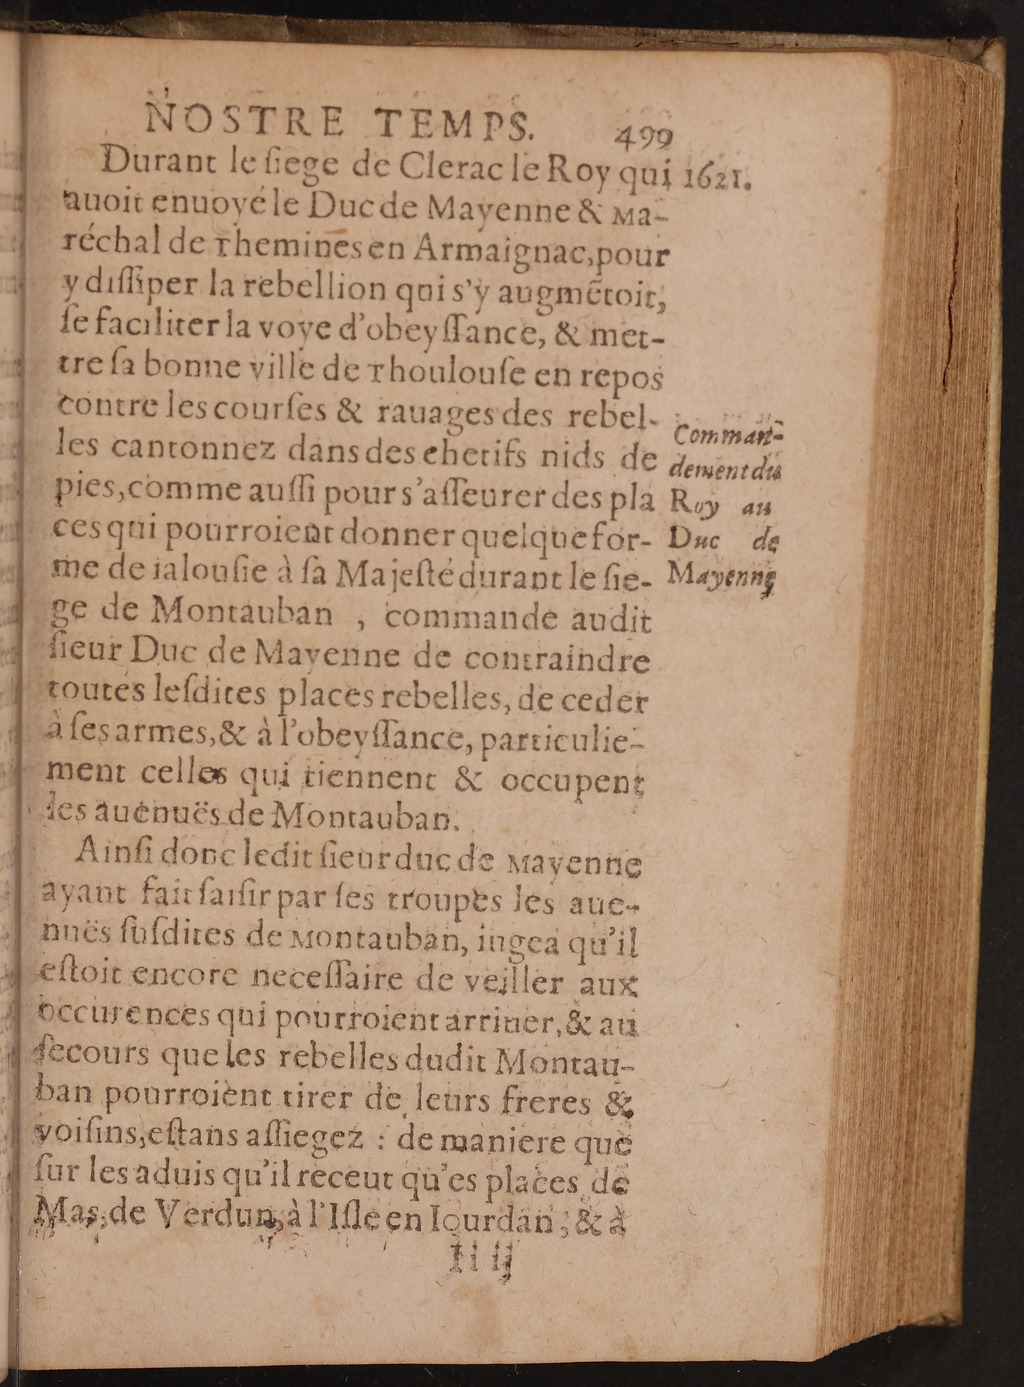 NOSTRE TEMPS. 499
Durant le siege de Clerac le Roy qui 1621.
auoit enuoyé le Duc de Mayenne & Ma-
réchal de Themines en Armaignac, pour
y dissiper la rebellion qui s'y augmẽtoit,
se faciliter la voye d'obeyssance, & met-
tre sa bonne ville de Thoulouse en repos
contre les courses & rauages des rebel-
les cantonnez dans des chetifs nids de
pies, comme aussi pour s'asseurer des pla
ces qui pourroient donner quelque for-
me de ialousie à sa Majesté durant le sie-
ge de Montauban , commande audit
sieur Duc de Mayenne de contraindre
toutes lesdites places rebelles, de ceder
à ses armes, & à l'obeyssance, particulie-
ment celles qui tiennent & occupent
les auenuës de Montauban.
Comman-
dement du
Roy au
Duc de
Mayenne
Ainsi donc ledit sieur duc de Mayenne
ayant fait saisir par ses troupes les aue-
nuës susdites de Montauban, iugea qu'il
estoit encore necessaire de veiller aux
occurences qui pourroient arriuer, & au
secours que les rebelles dudit Montau-
ban pourroient tirer de leurs freres &
voisins, estans assiegez : de maniere que
sur les aduis qu'il receut qu'es places de
Mas, de Verdun, à l'Isle en Iourdan, & à
Ii ij